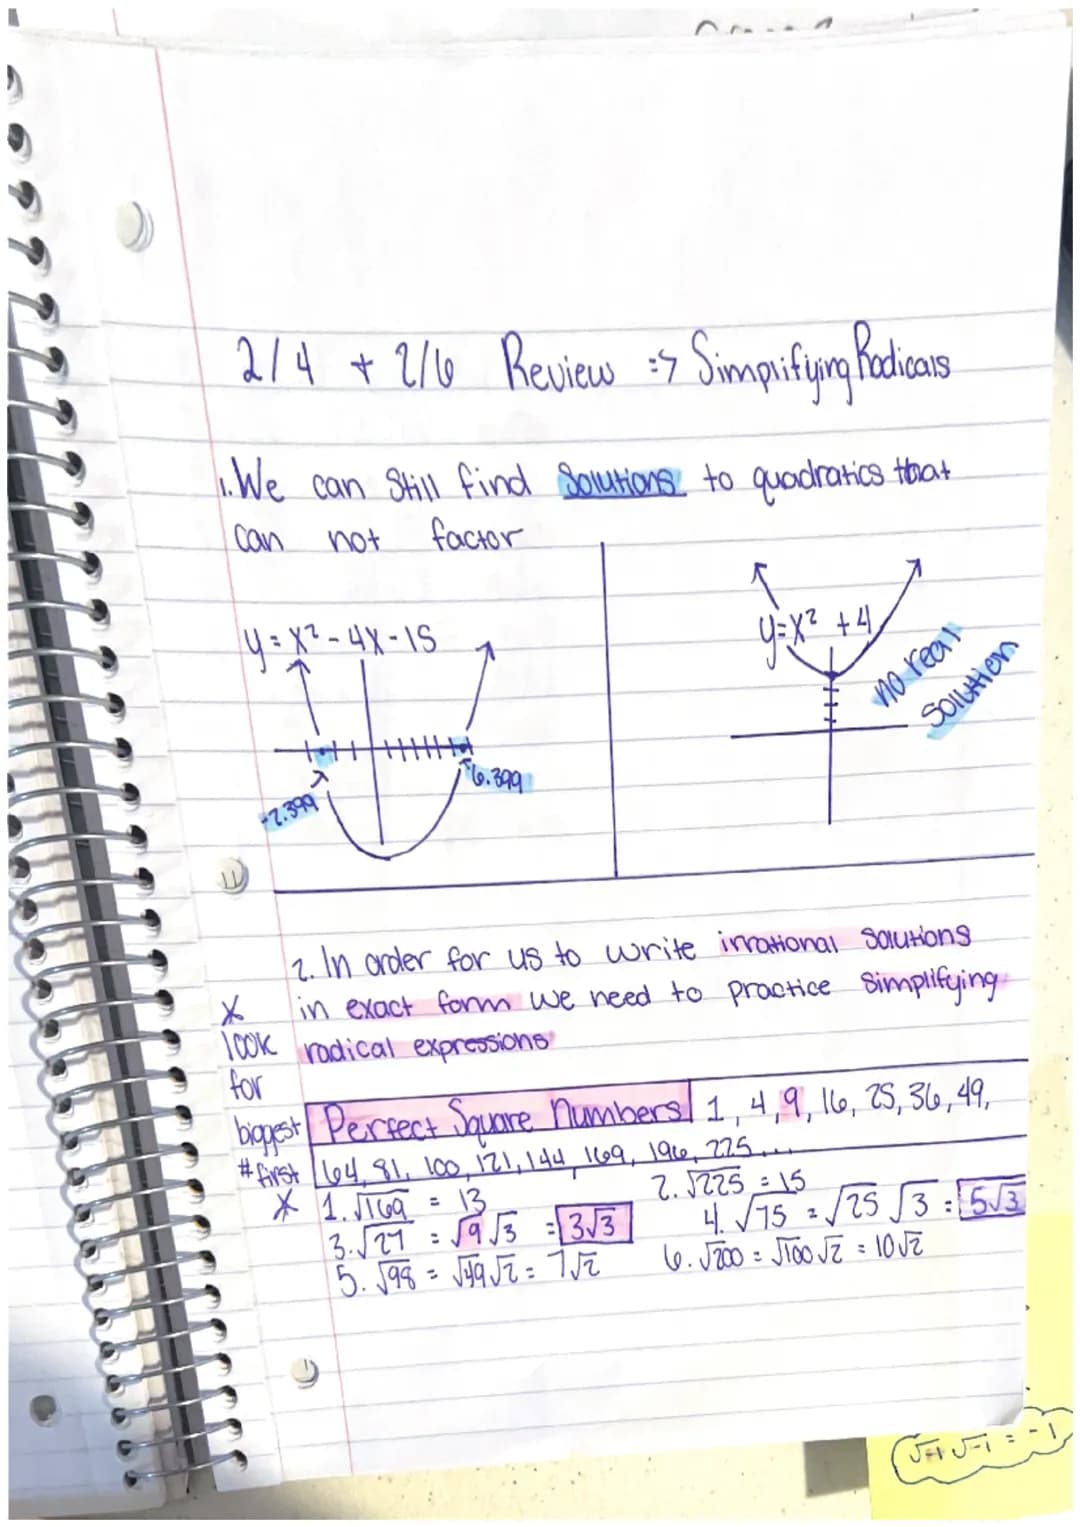 2/4 + 2/6 Review => Simplifying Radicals
1. We can still find solutions to quadratics that
can not factor
y = x² - 4x - 15
-2.399
6.399
y = x² + 4
no real
solution
2. In order for us to write irrational solutions
in exact form we need to practice simplifying
radical expressions
X
look
for
biggest
# first
X
Perfect Square Numbers 1, 4, 9, 16, 25, 36, 49,
64, 81, 100, 121, 144, 169, 196, 225...
1. √169 = 13
2. √225 = 15
3. √27 = √9 √3 = 3√3
4. √75 = √25 √3 = 5√3
5. √98 = √49 √2 = 7√2
6. √200 = √100 √2 = 10√2
√-1 √-1 = -1